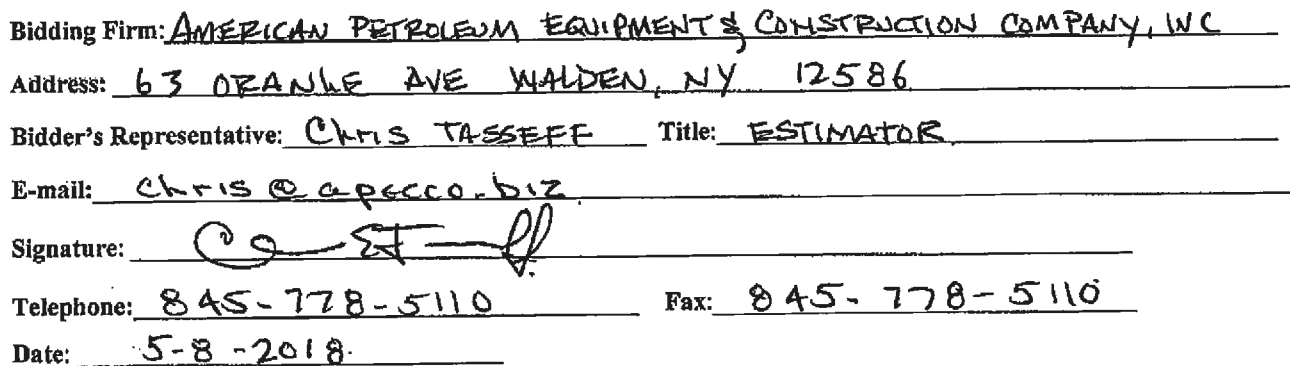 Bidding Firm: AMERICAN PETROLEUM EQUIPMENT & CONSTRUCTION COMPANY, INC
Address: 63 ORANGE AVE WALDEN, NY 12586
Bidder's Representative: Chris TASSEFF Title: ESTIMATOR
E-mail: chris@apecco.biz
Signature:
Telephone: 845-778-5110 Fax: 845-778-5110
Date: 5-8-2018